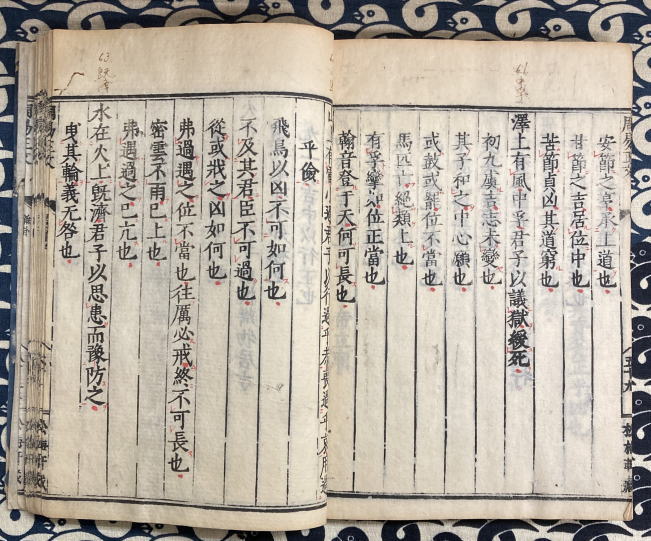 安節之亨承上道也
甘節之吉居位中也
苦節貞凶其道窮也
澤上有風中孚君子以議獄緩死
初九虞吉志未變也
其子和之中心願也
或鼓或罷位不當也
馬匹亡絕類上也
有孚攣如位正當也
翰音登于天何可長也
乎儉
飛鳥以凶不可如何也
不及其君臣不可過也
從或戕之凶如何也
弗過遇之位不當也往厲必戒終不可長也
密雲不雨已上也
弗遇過之已亢也
水在火上旣濟君子以思患而豫防之
曳其輪義无咎也
63